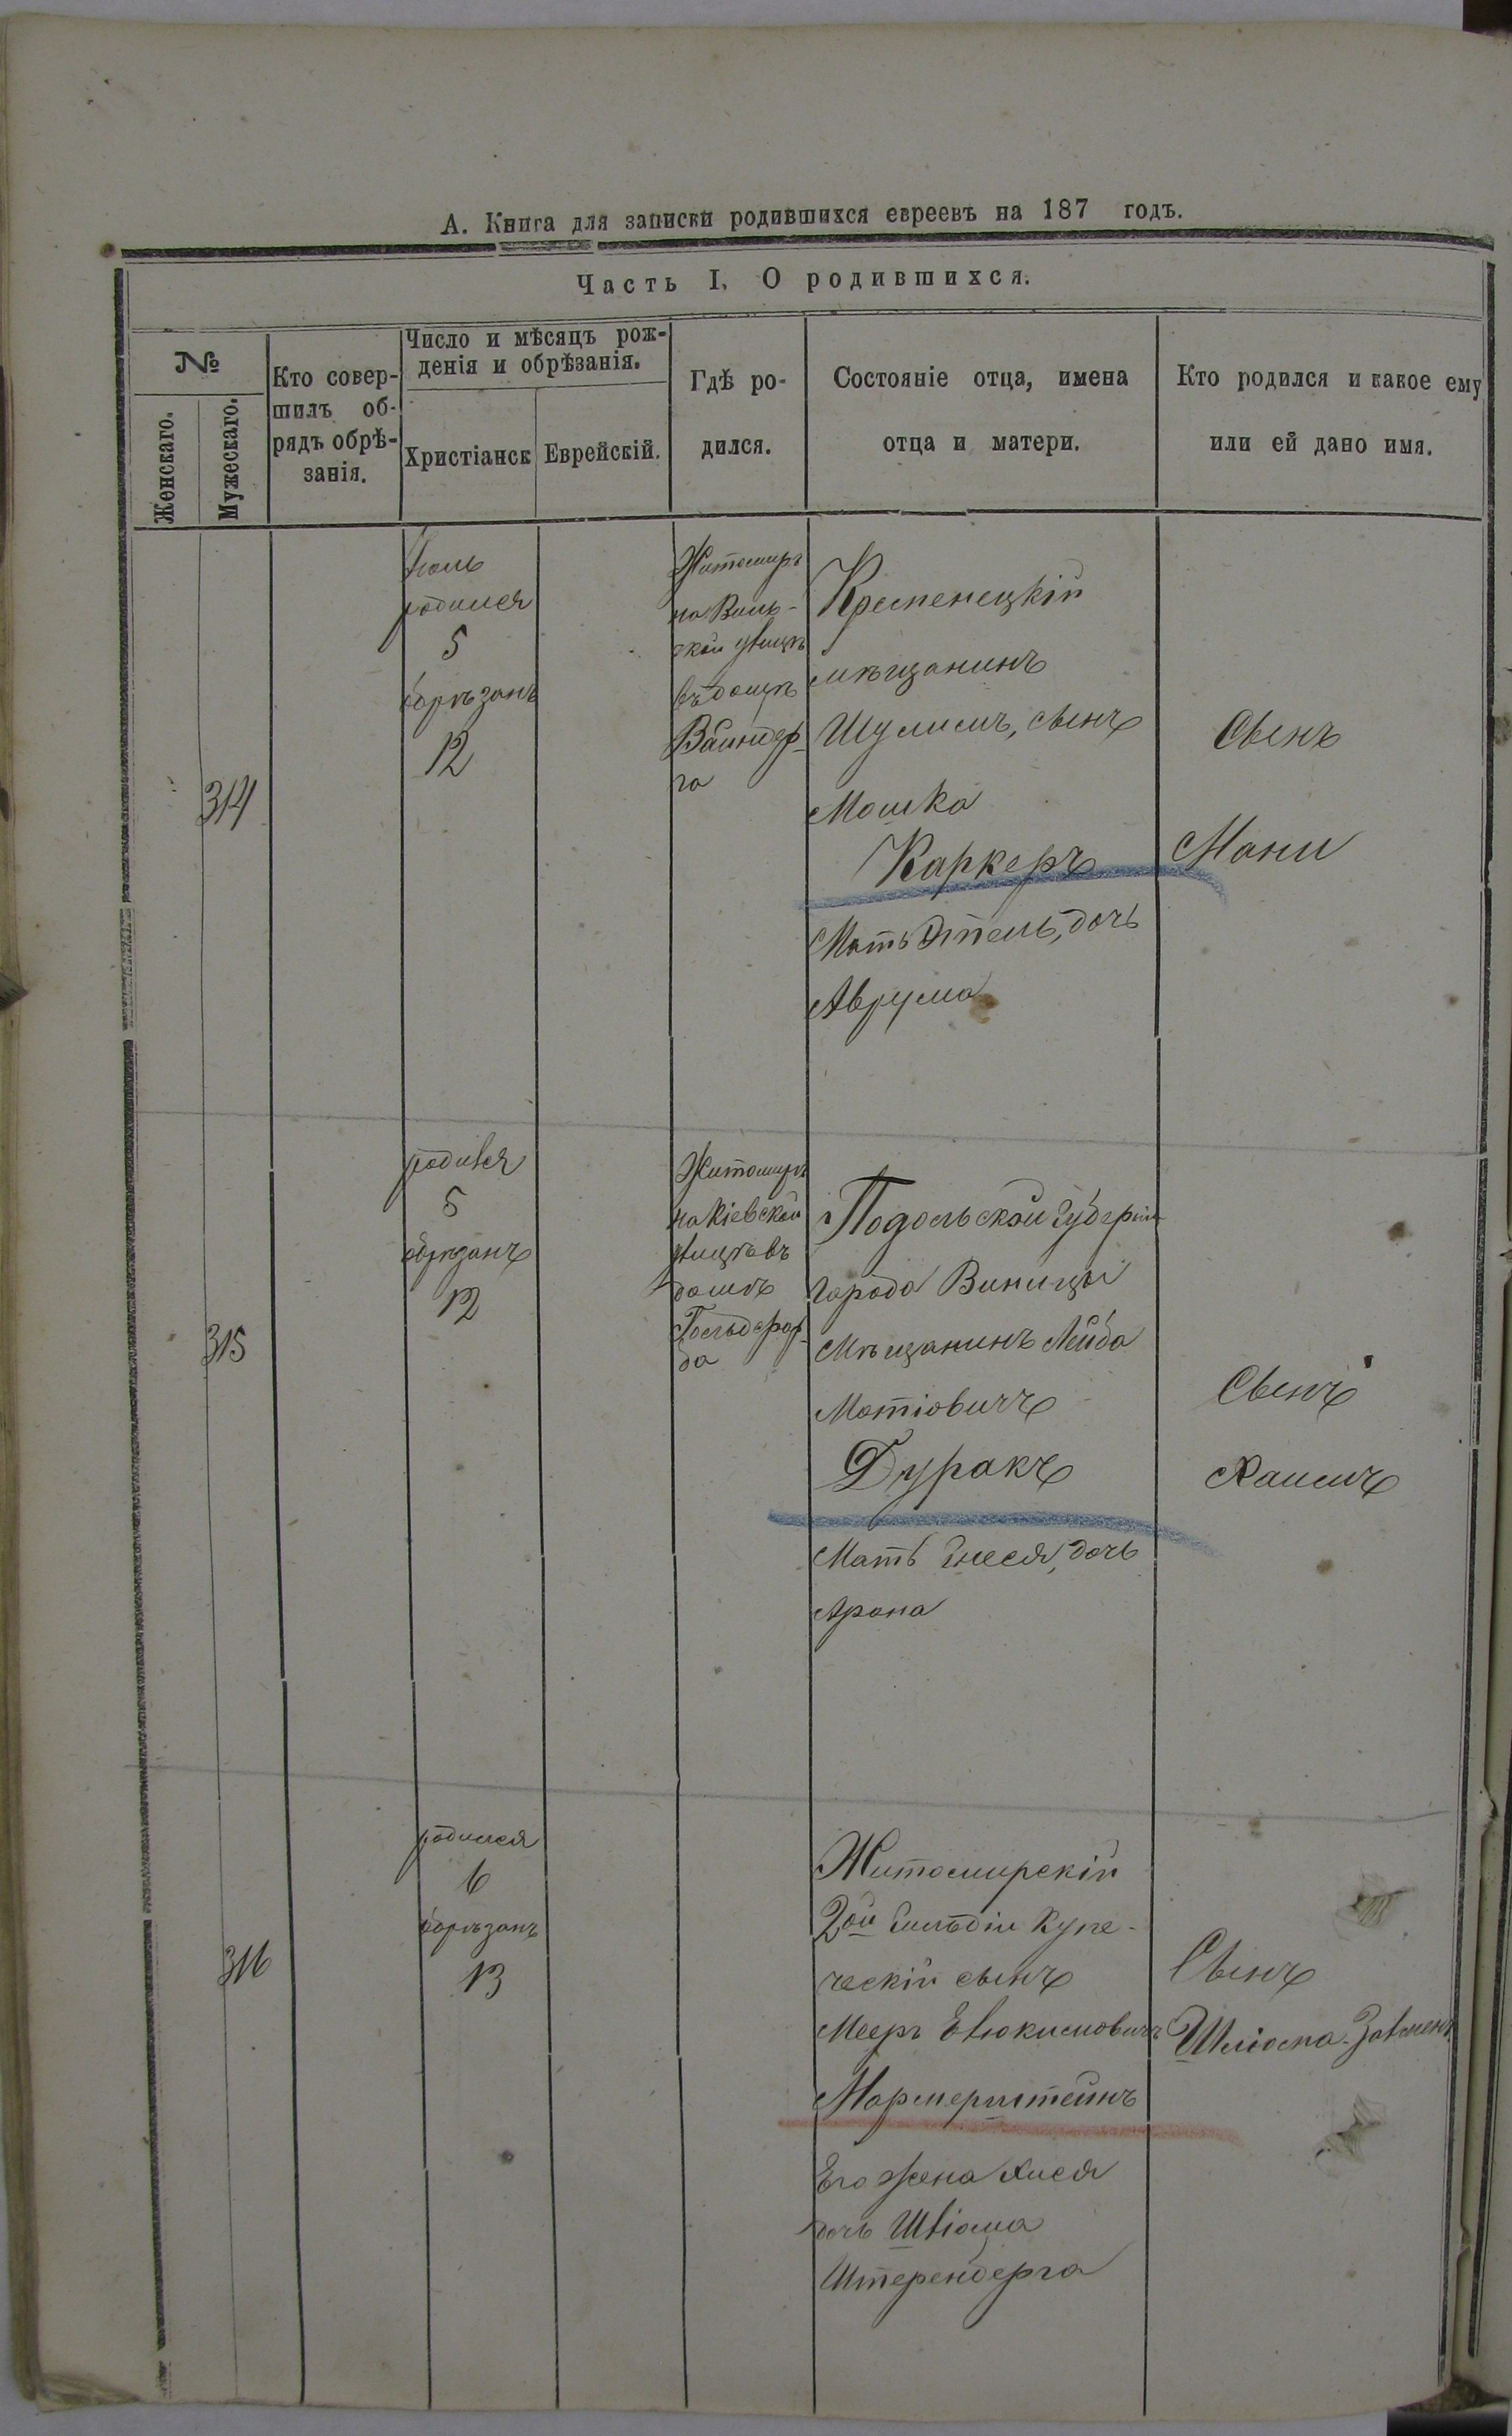 А. Книга для записки родившихся евреевъ на 187 годъ.
Часть I. О родившихся.
№
Женскаго.
Мужескаго.
Кто совер-
шилъ об-
рядъ обрѣ-
занія.
Число и мѣсяцъ рож-
денія и обрѣзанія.
Христіанск
Еврейскій.
Гдѣ ро-
дился.
Состояніе отца, имена
отца и матери.
Кто родился и какое ему
или ей дано имя.
314
родился
5
обрѣзанъ
12
Житомиръ
на Виль-
ской улицѣ
въ домѣ
Кременецкій
мѣщанинъ
Шулимъ, сынъ
Мошка
Каркеръ
Мать Этель, дочь
Аврума
Сынъ
Мани
315
родился
5
обрѣзанъ
12
Житомиръ
на Кіевской
улицѣ въ
домѣ
Подольской Губерніи
города Виницы
Мѣщанинъ Лейба
Мотіовичъ
Дуракъ
Мать Гнеся, дочь
Арона
Сынъ
Хаимъ
316
родился
6
обрѣзанъ
13
Житомирскій
2ой Гильдіи Купе-
ческій сынъ
Мееръ
Мармерштейнъ
Его жена Хися
дочь Шліома
Штеренберга
Сынъ
Шліома-Залмень